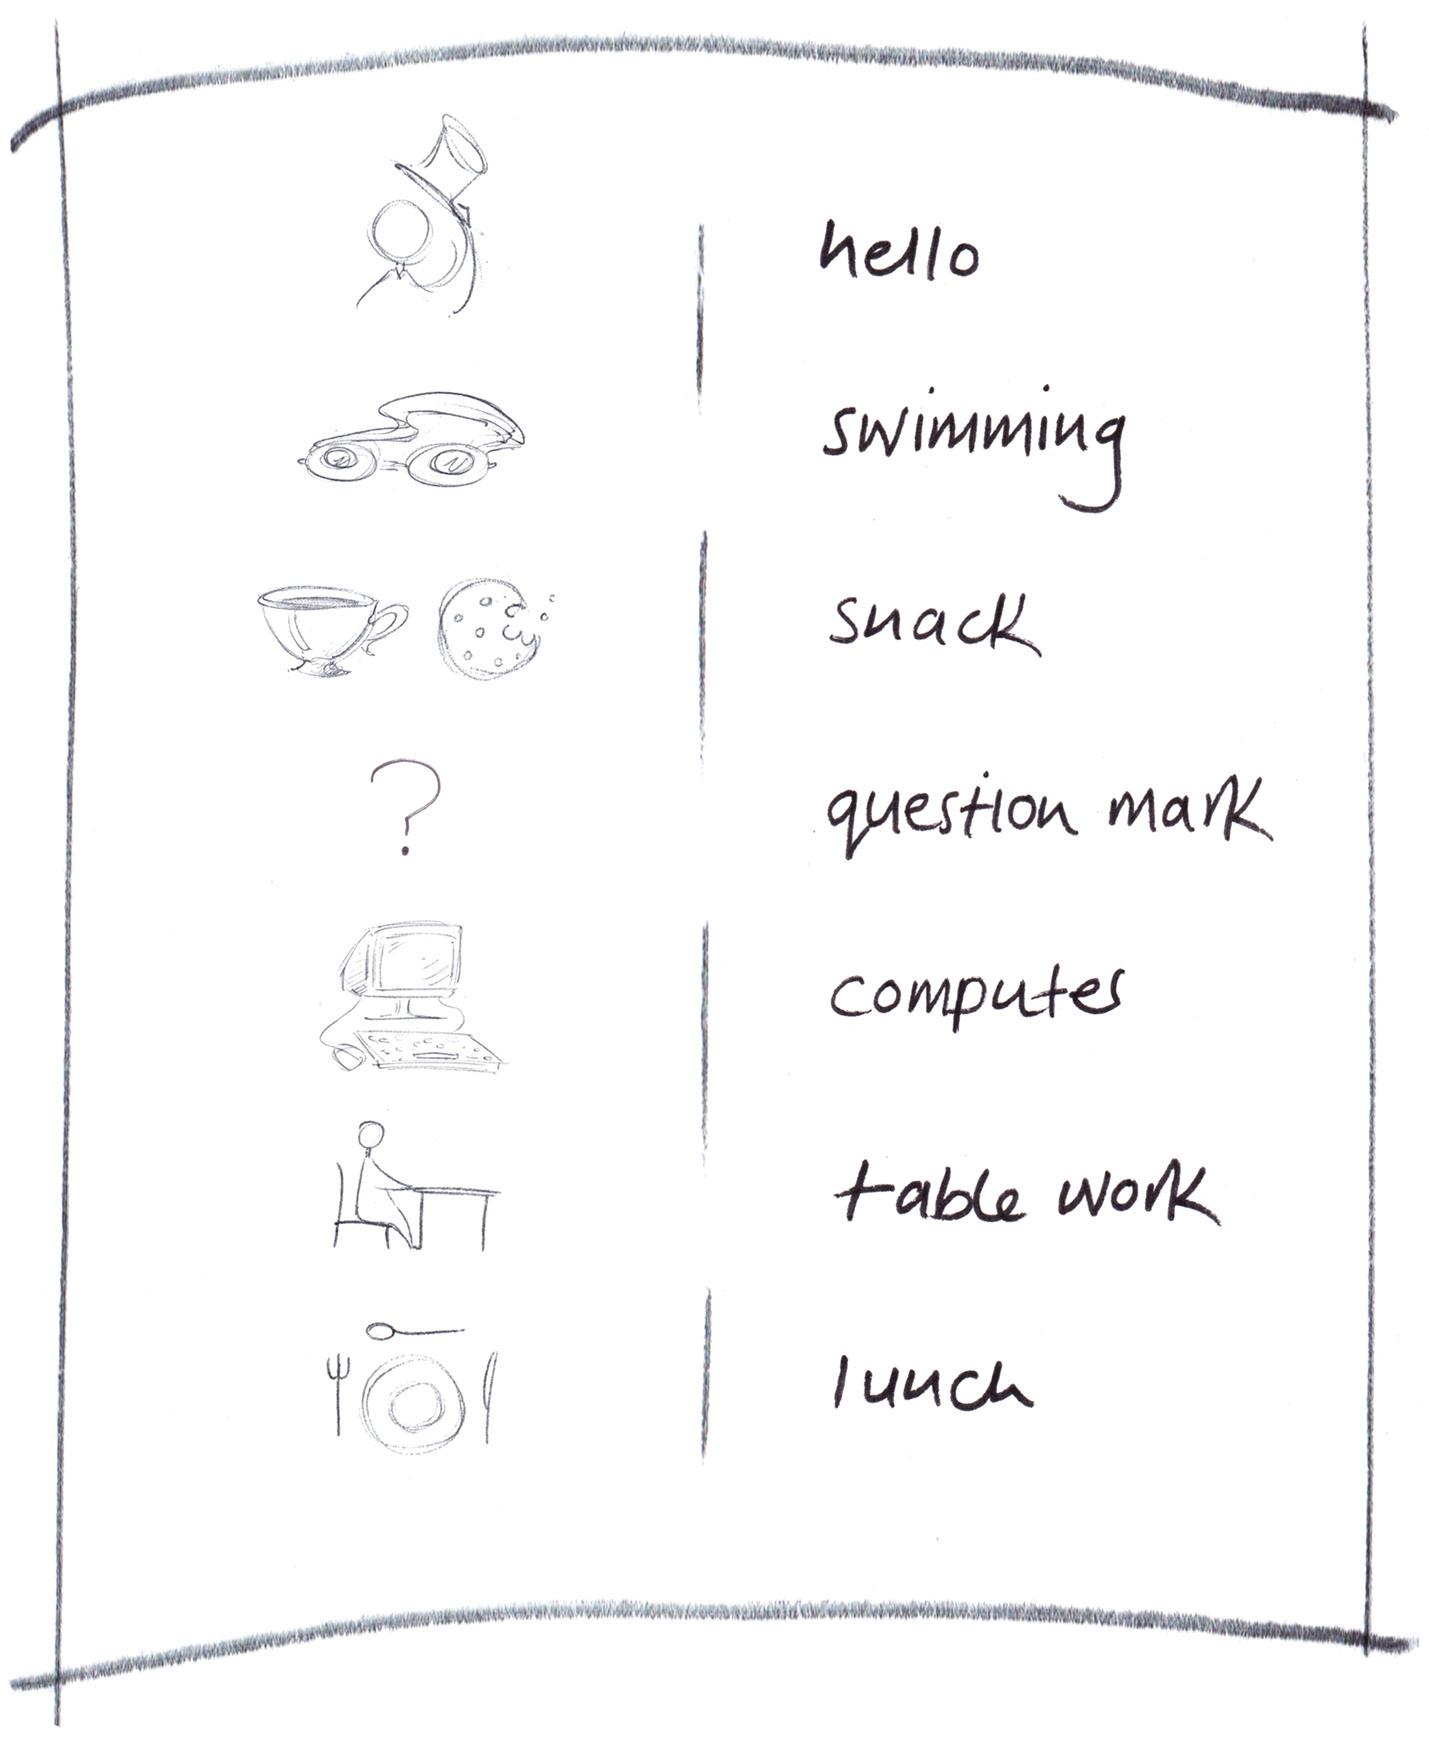 hello
swimming
snack
?
question mark
computer
table work
lunch